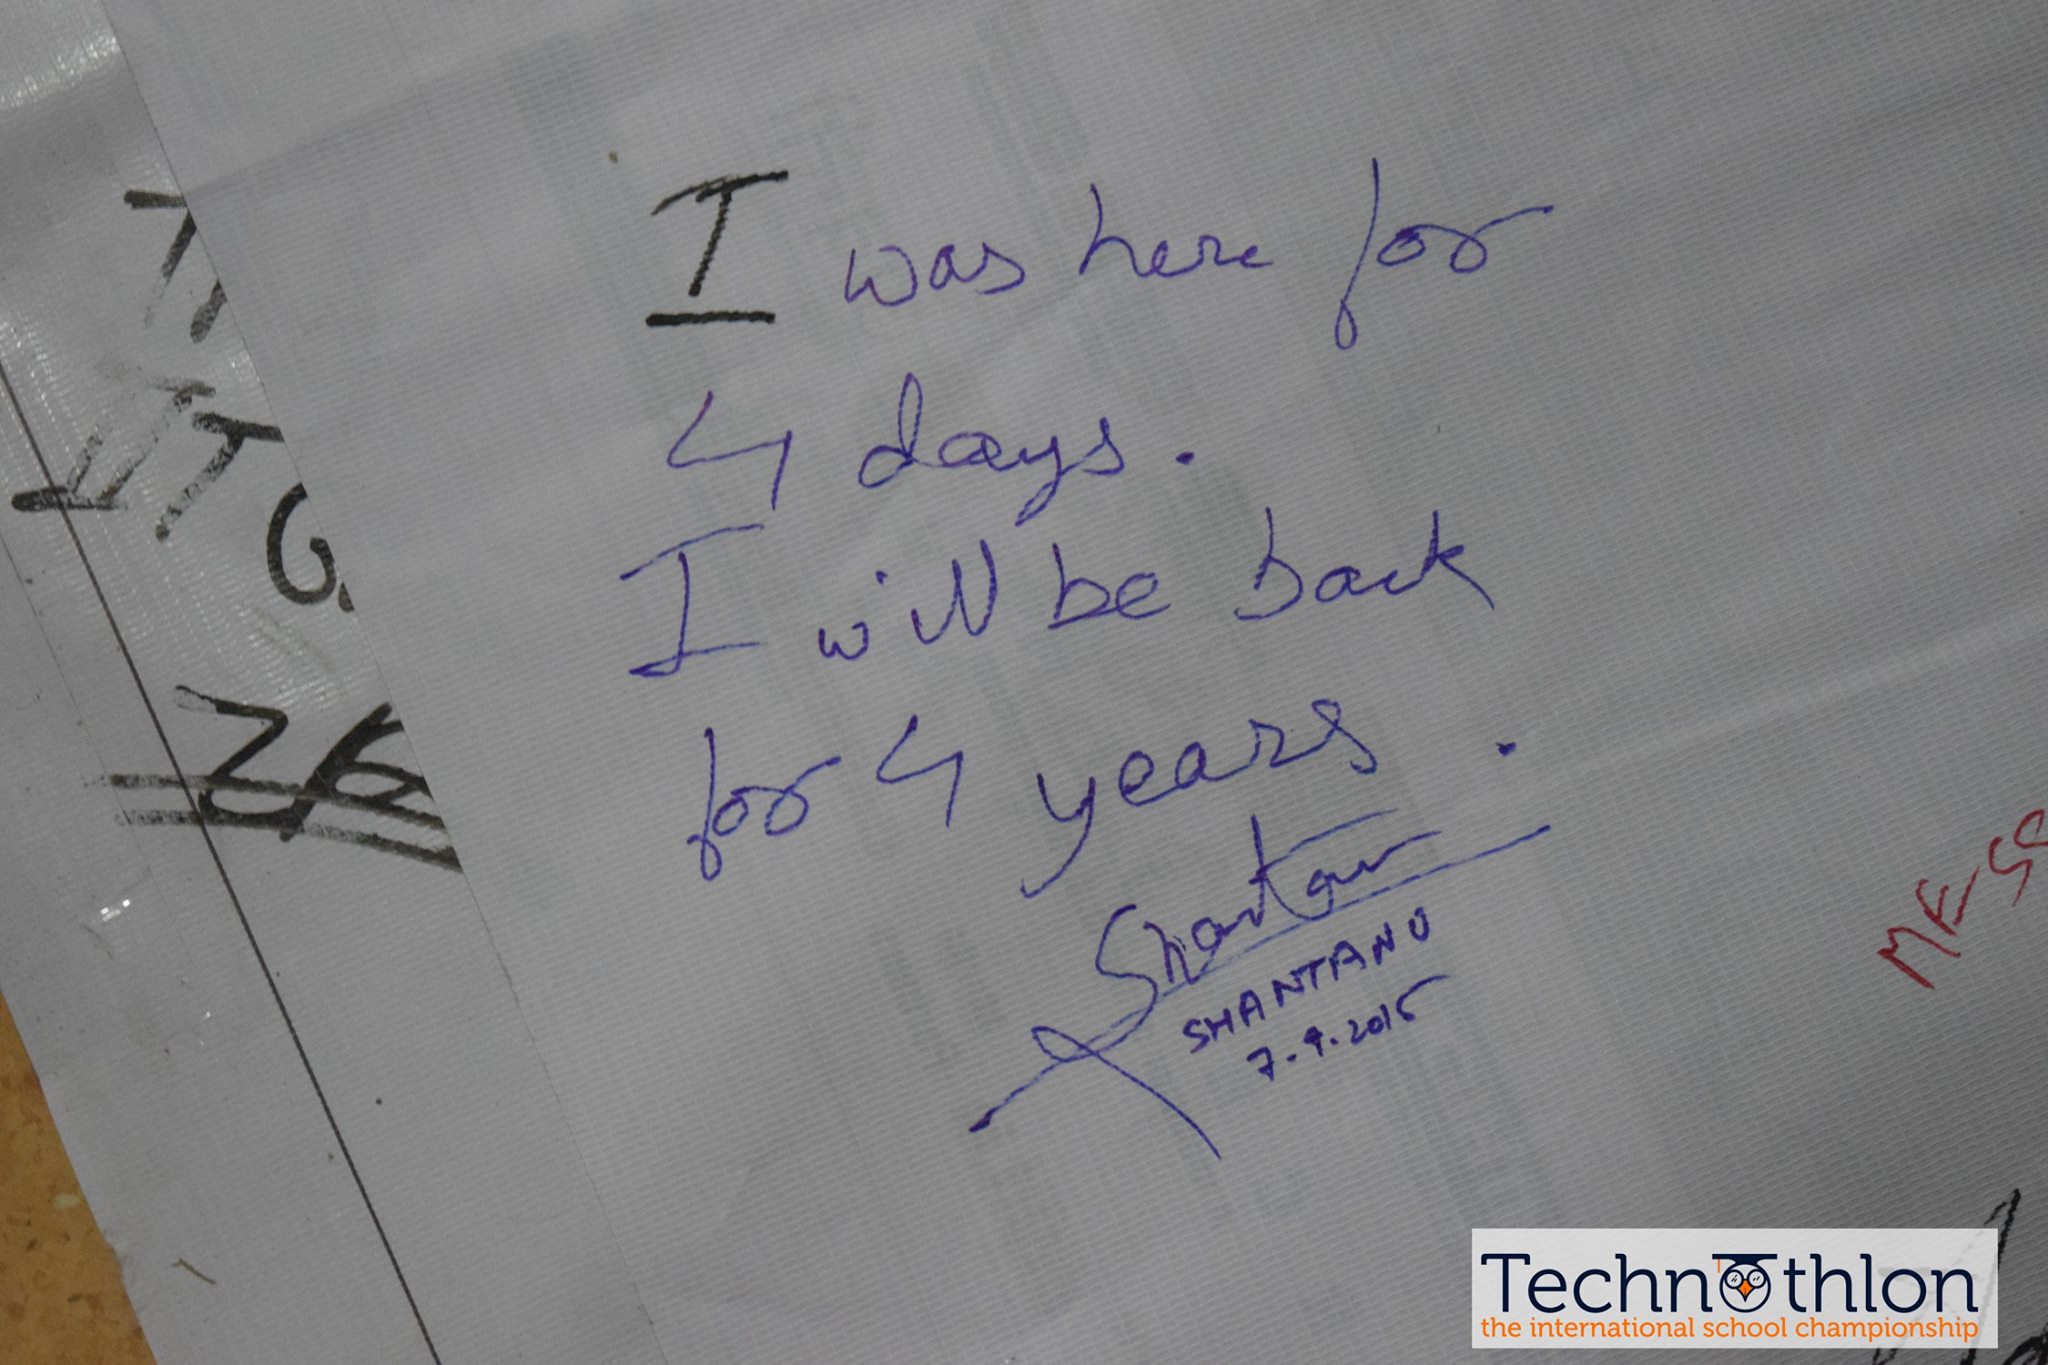 I was here for
4 days.
I will be back
for 4 years.
Shantanu
SHANTANU
7.9.2015
MESS
Technothlon
the international school championship